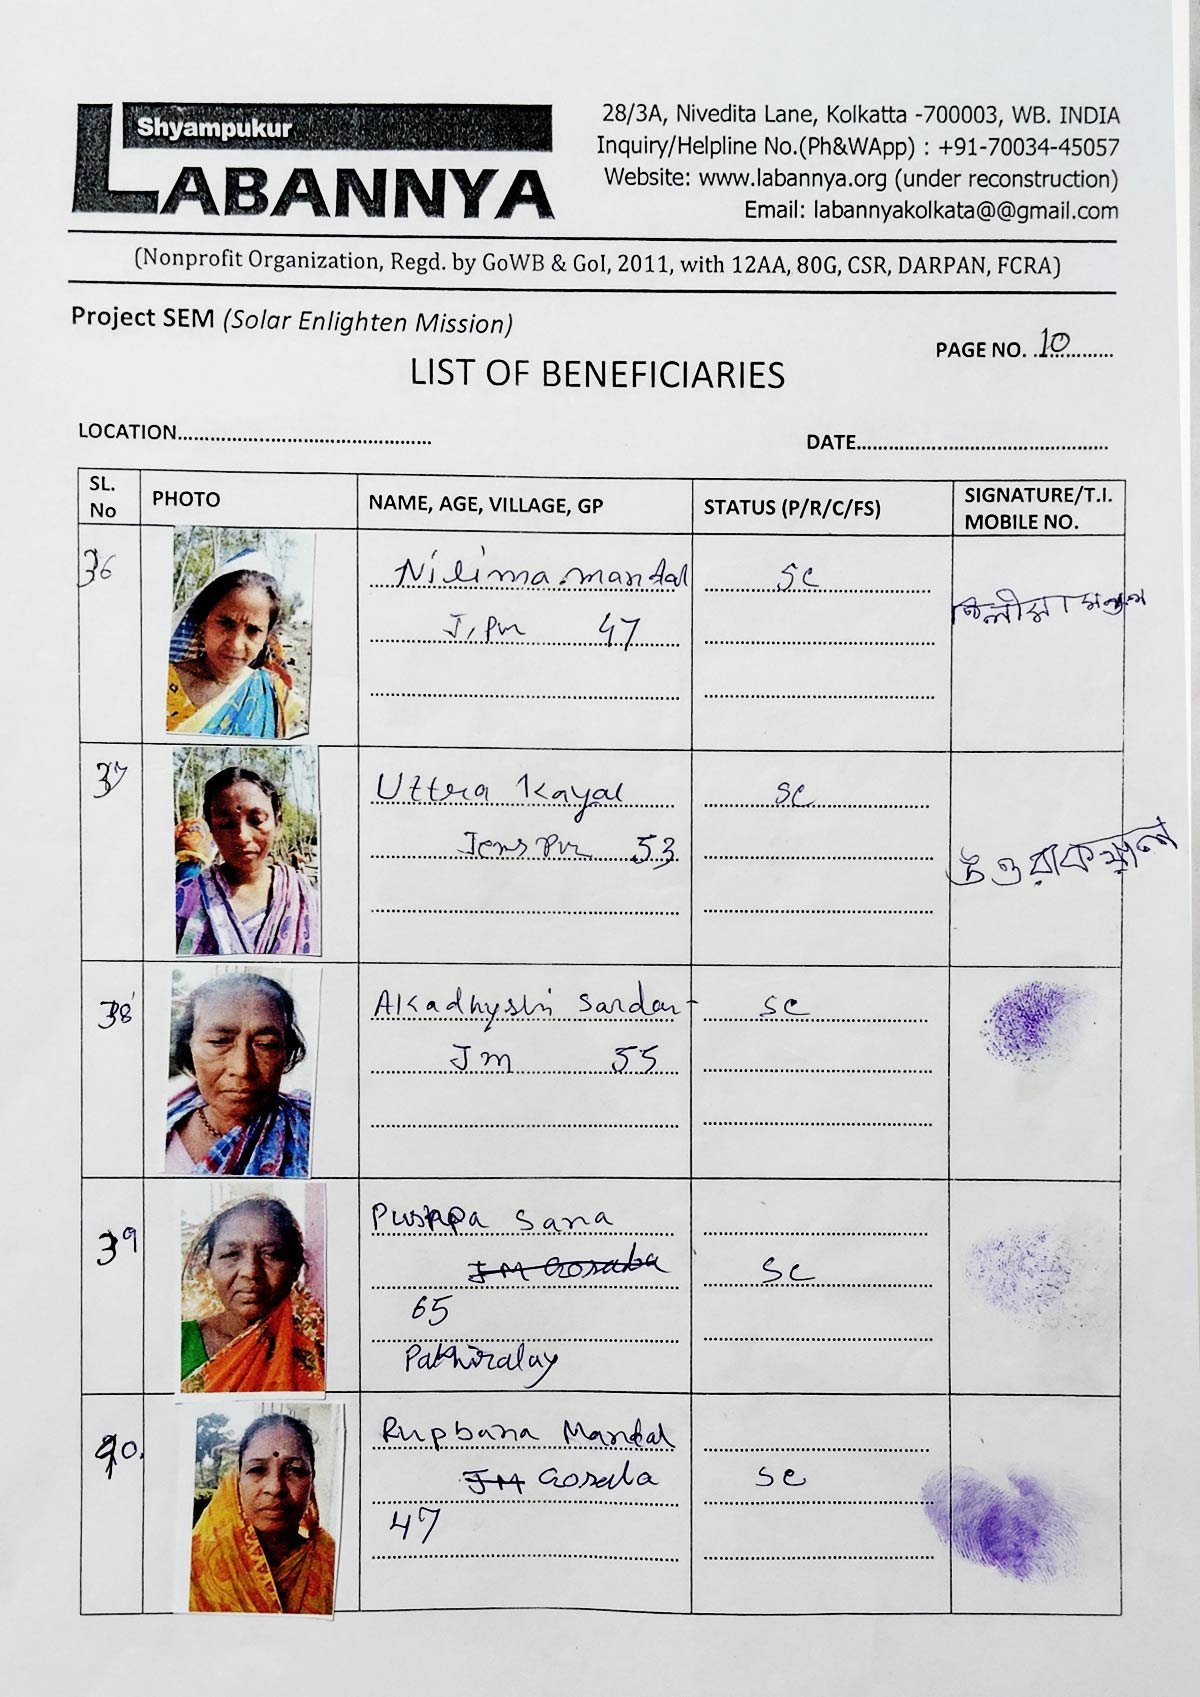 Shyampukur
LABANNYA
28/3A, Nivedita Lane, Kolkatta -700003, WB. INDIA
Inquiry/Helpline No.(Ph&WApp) : +91-70034-45057
Website: www.labannya.org (under reconstruction)
Email: labannyakolkata@@gmail.com
(Nonprofit Organization, Regd. by GoWB & GoI, 2011, with 12AA, 80G, CSR, DARPAN, FCRA)
Project SEM (Solar Enlighten Mission)
PAGE NO. 10
LIST OF BENEFICIARIES
LOCATION
DATE
SL. No PHOTO NAME, AGE, VILLAGE, GP STATUS (P/R/C/FS) SIGNATURE/T.I. MOBILE NO.
36 Nilima mandal SC
47
37 Uttra Kayal SC
53
উত্তরা কয়াল
38 Sardar SC
JM 55
39 Pushpa Sana
JM Gosaba SC
65
Pakhiralay
40. Rupbana Mandal
JM Gosaba SC
47